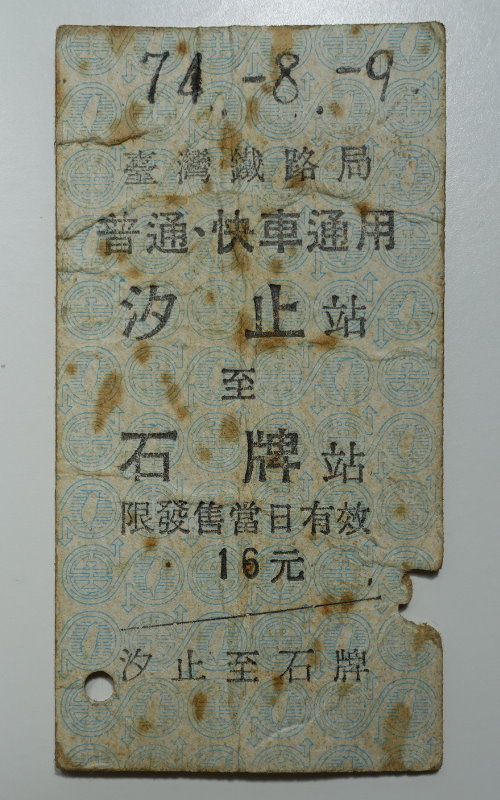 74.-8.-9.
臺灣鐵路局
普通、快車通用
汐止站
至
石牌站
限發售當日有效
16元
汐止至石牌